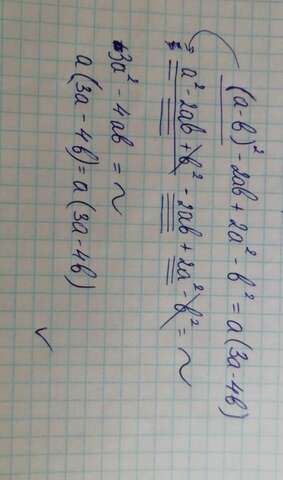 (a-b)² - 2ab + 2a² - b² = a(3a-4b)
a² - 2ab + b² - 2ab + 2a² - b² = ~
3a² - 4ab = ~
a(3a-4b) = a(3a-4b)
✓